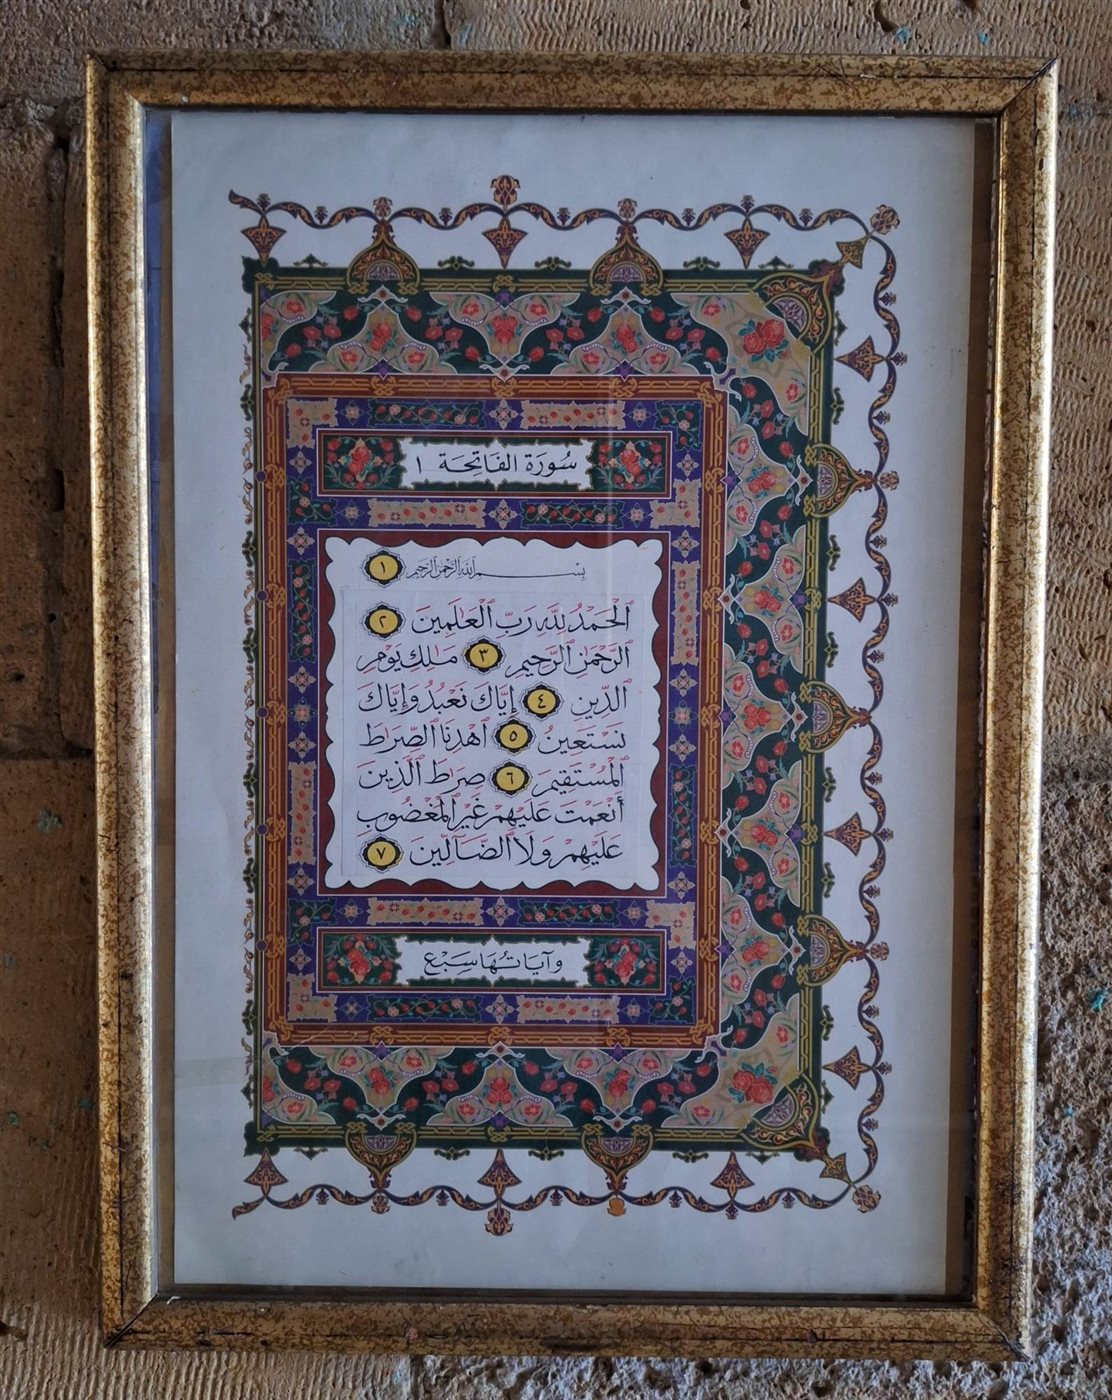 سُورَة الفَاتِحَة ١
بِسْمِ ٱللَّهِ ٱلرَّحْمَٰنِ ٱلرَّحِيمِ ١
ٱلْحَمْدُ لِلَّهِ رَبِّ ٱلْعَٰلَمِينَ ٢
ٱلرَّحْمَٰنِ ٱلرَّحِيمِ ٣ مَٰلِكِ يَوْمِ
ٱلدِّينِ ٤ إِيَّاكَ نَعْبُدُ وَإِيَّاكَ
نَسْتَعِينُ ٥ ٱهْدِنَا ٱلصِّرَٰطَ
ٱلْمُسْتَقِيمَ ٦ صِرَٰطَ ٱلَّذِينَ
أَنْعَمْتَ عَلَيْهِمْ غَيْرِ ٱلْمَغْضُوبِ
عَلَيْهِمْ وَلَا ٱلضَّآلِّينَ ٧
وَآيَاتُهَا سَبْعٌ